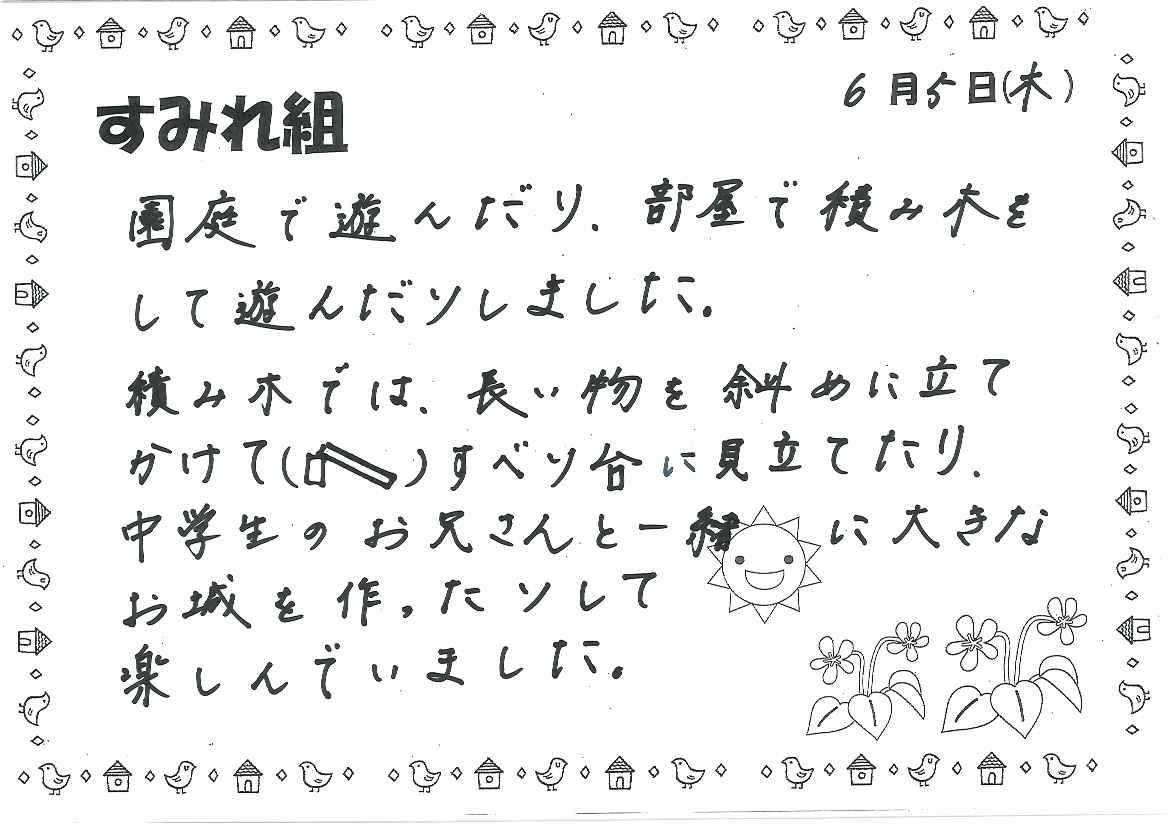 6月5日(木)
すみれ組
園庭で遊んだり、部屋で積み木を
して遊んだりしました。
積み木では、長い物を斜めに立て
かけて( )すべり台に見立てたり、
中学生のお兄さんと一緒に大きな
お城を作ったりして
楽しんでいました。